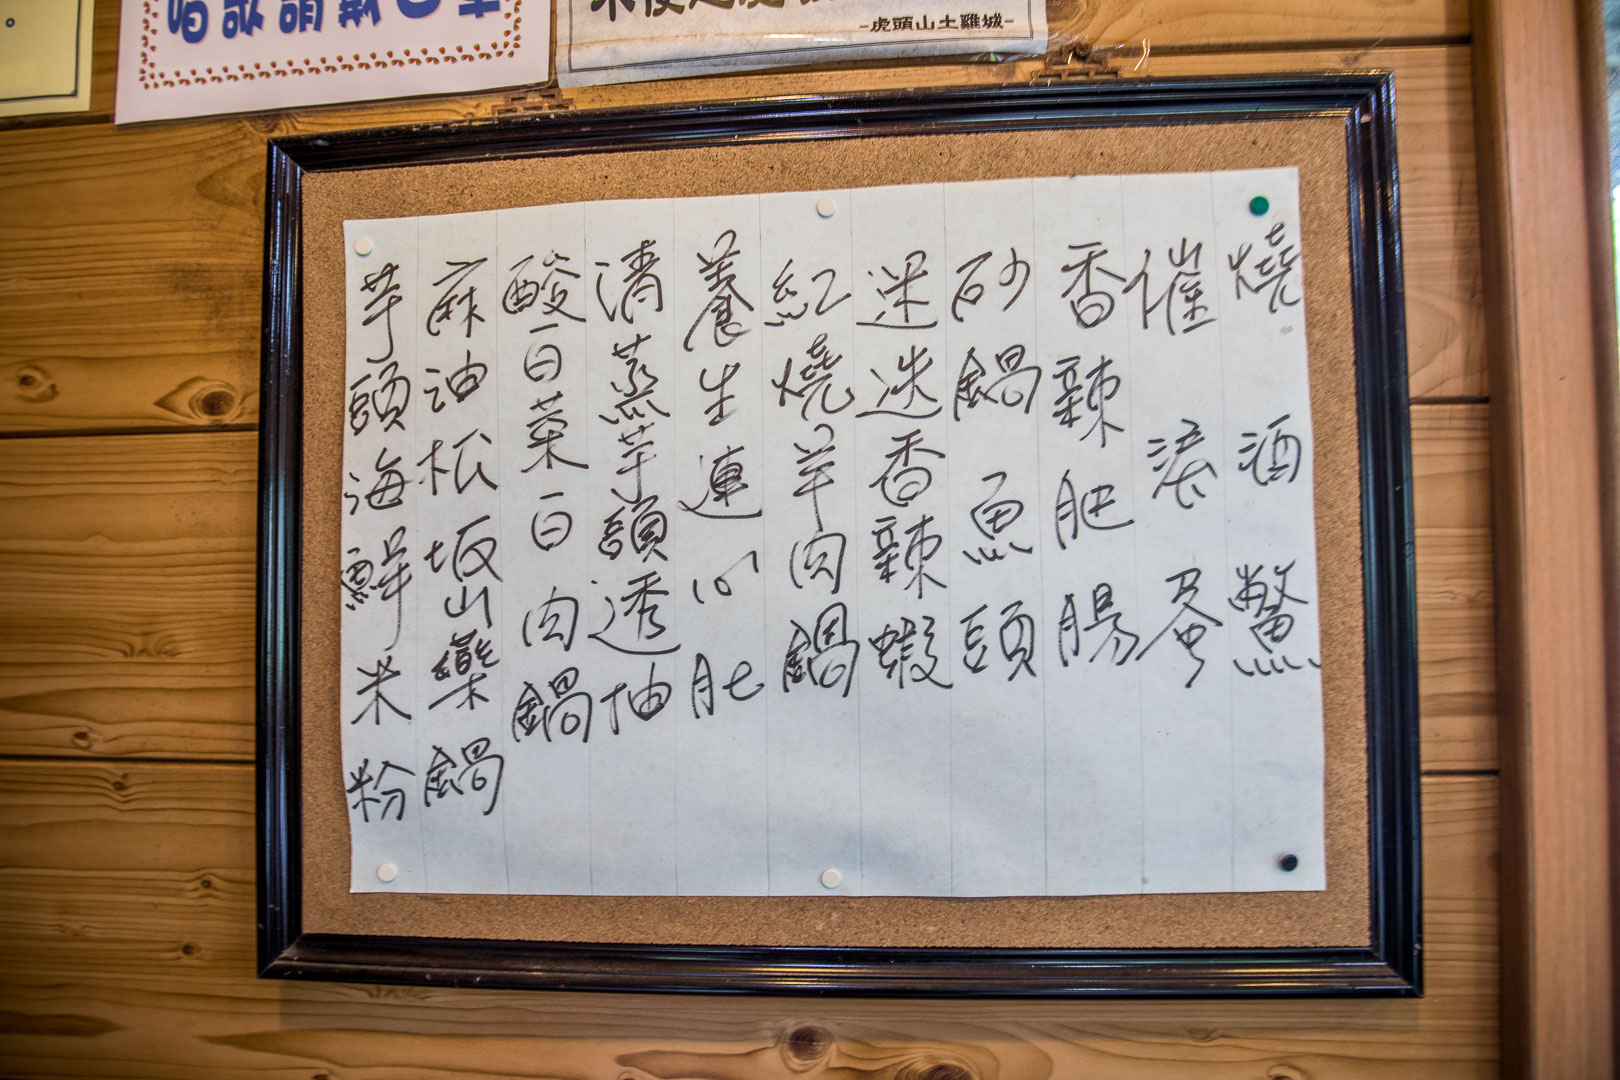 唱歌請戴口罩
-虎頭山土雞城-
燒酒鱉
催淚蛋
香辣肥腸
砂鍋魚頭
迷迭香辣蝦
紅燒羊肉鍋
養生蓮心肚
清蒸芋頭透抽
酸白菜白肉鍋
麻油松坂山藥鍋
芋頭海鮮米粉